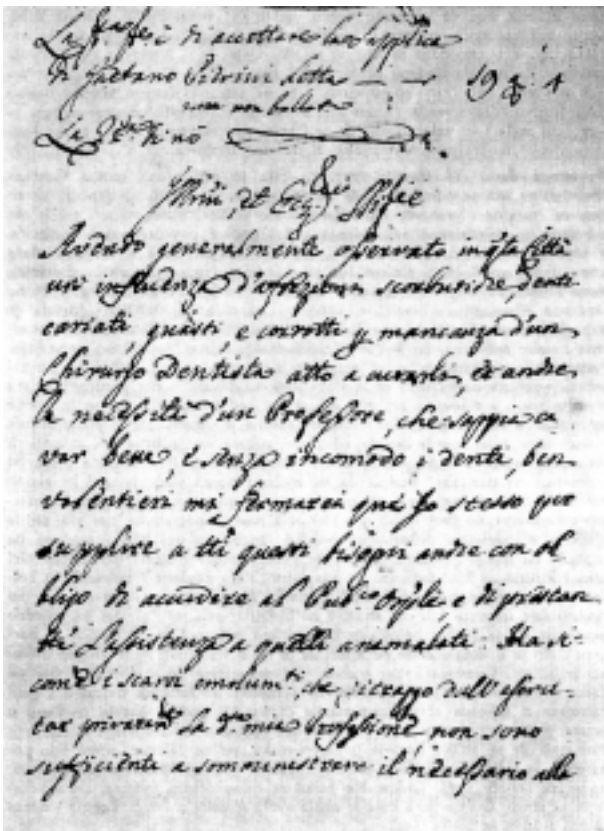 di accettare la supplica
di Gaetano letta — — 19 4
non
Avendo generalmente osservato in qta Città
un influenza d'affezioni scorbutiche, denti
cariati, guasti, e corrotti p mancanza d'un
Chirurgo Dentista atto a curarli, ed anche
la necessità d'un Professore, che sappia ca
var bene, e senza incomodo i denti, ben
volentieri mi fermarei quì Io stesso per
supplire a tti questi bisogni anche con ob
bligo di accudire al Pub.co e di prestar
l'assistenza a quelli ammalati. Ma sic
come i scarsi emolum.ti che ritraggo dall'eserci-
tar la d.a mia Professione, non sono
sufficienti a somministrare il necessario alla